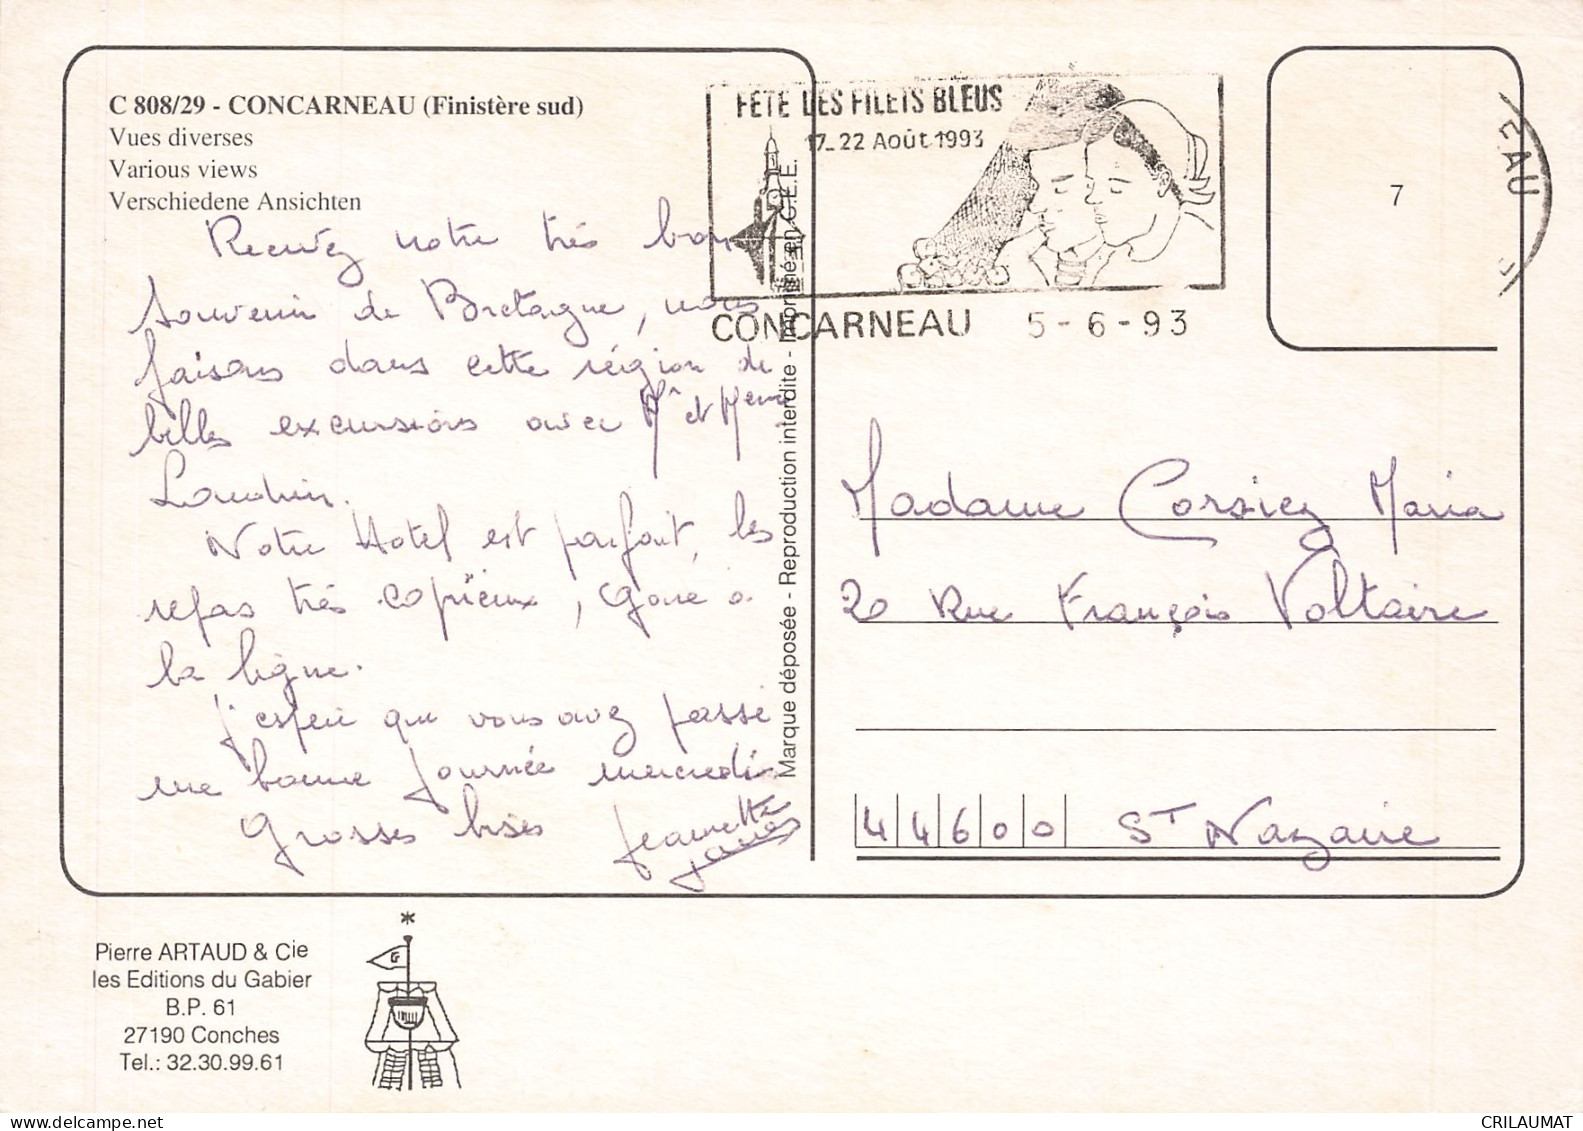 C 808/29 - CONCARNEAU (Finistère sud)
Vues diverses
Various views
Verschiedene Ansichten
Recevez notre très bon
souvenir de Bretagne, nous
faisons dans cette région de
belles excursions avec Mr et Meme
Notre Hotel est parfait, les
repas très copïeux, gare à
la ligne.
j'espère que vous avez passé
une bonne journée mercredi.
Grosses bises Jeannette
FETE DES FILETS BLEUS
17-22 Août 1993
CONCARNEAU 5-6-93
EAU
7
Marque déposée - Reproduction interdite - Imprimé en C.E.E.
Madame Corsiez Maria
20 Rue François Voltaire
44600 ST Nazaire
Pierre ARTAUD & Cie
les Editions du Gabier
B.P. 61
27190 Conches
Tel.: 32.30.99.61
G
CRILAUMAT